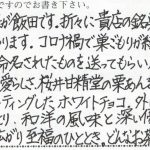 ですのでお書き下さい。
が飯田です。折々に貴店の銘
ります。コロナ禍で巣ごもりが続
命名されたものを送ってもらい
愛らしく、桜井甘精堂の栗あん
ティングしたホワイトチョコ。外
とり、和洋の風味と深い
がり至福のひととき。どんなお茶